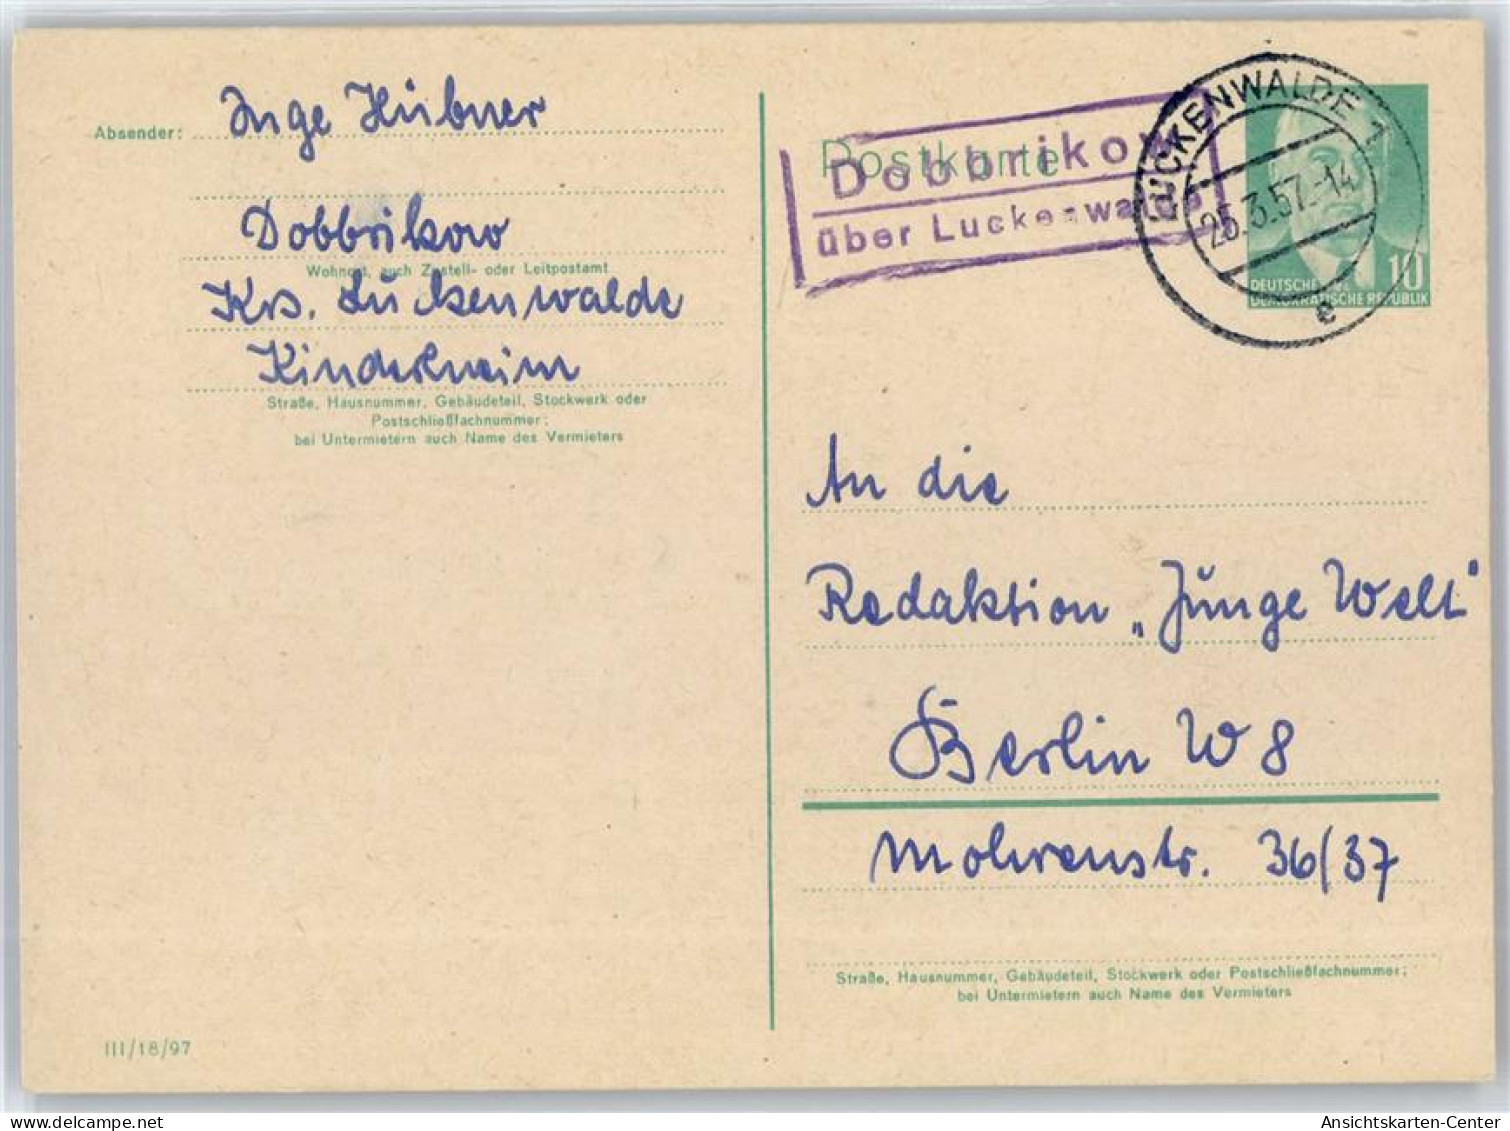 Absender: Inge Hübner
Dobbrikow
Wohnort, auch Zustell- oder Leitpostamt
Krs. Luckenwalde
Kinderheim
Straße, Hausnummer, Gebäudeteil, Stockwerk oder
Postschließfachnummer;
bei Untermietern auch Name des Vermieters
III/18/97
Postkarte
Dobbrikow
über Luckenwalde
LUCKENWALDE 1
25.3.57.-14
e
10
DEUTSCHE
DEMOKRATISCHE REPUBLIK
An die
Redaktion „Junge Welt"
Berlin W 8
Mohrenstr. 36/37
Straße, Hausnummer, Gebäudeteil, Stockwerk oder Postschließfachnummer;
bei Untermietern auch Name des Vermieters
delcampe.net
Ansichtskarten-Center